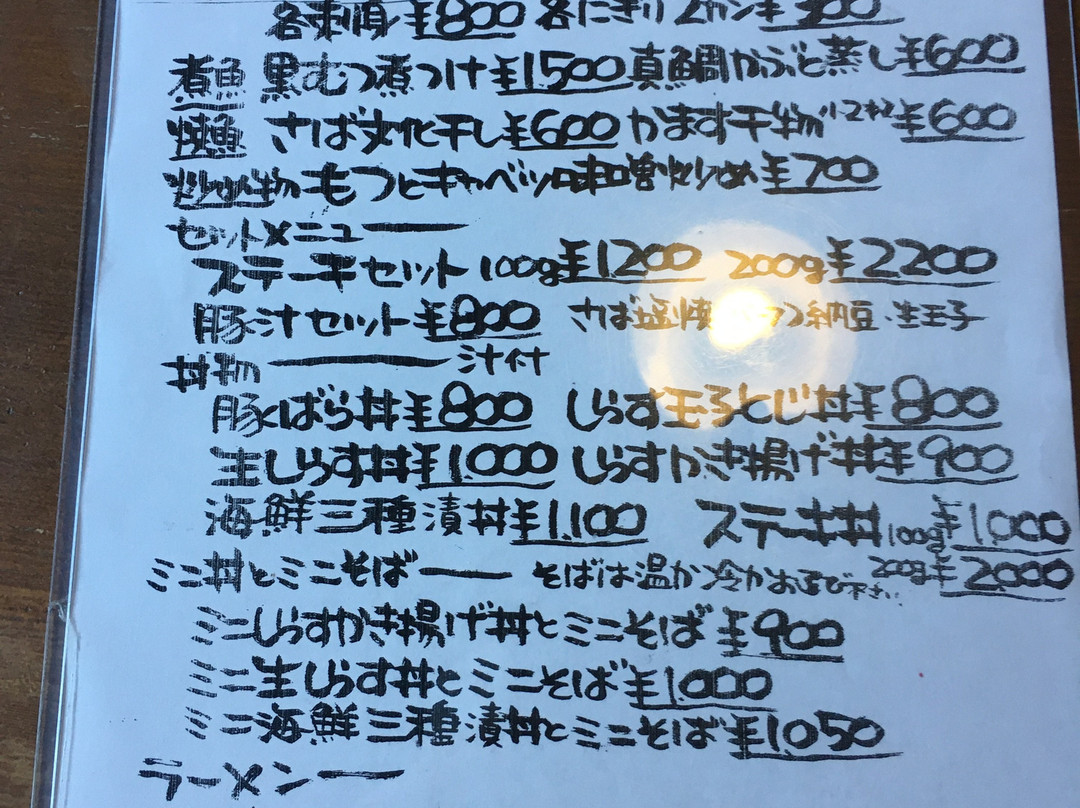 各壱順¥800 各にぎり2カン¥300
煮魚 黒むつ煮つけ¥1,500 真鯛かぶと蒸し¥600
焼魚 さば文化干し¥600 かます干物 ¥600
炒め物 もつとキャベツ味噌炒め¥700
セットメニュー
ステーキセット 100g¥1200 200g¥2200
豚汁セット¥800 さば塩焼 納豆・生玉子
丼物 汁付
豚ばら丼¥800 しらす玉子とじ丼¥800
生しらす丼¥1,000 しらすかき揚げ丼¥900
海鮮三種漬丼¥1,100 ステーキ丼 100g¥1,000
ミニ丼とミニそば そばは温か冷かお選び下さい 200g¥2,000
ミニしらすかき揚げ丼とミニそば¥900
ミニ生しらす丼とミニそば¥1,000
ミニ海鮮三種漬丼とミニそば¥1,050
ラーメン